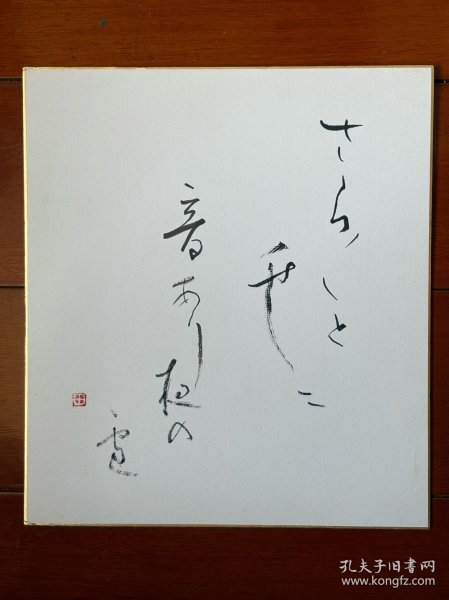 さら〱と
竹ニ
音あり夜の
雪
孔夫子旧书网
www.kongfz.com